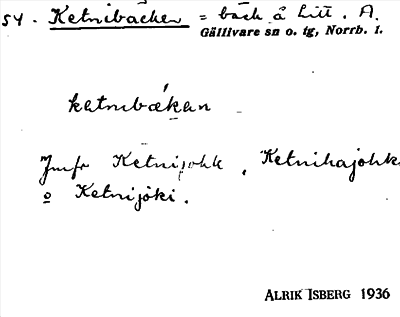 54. Ketnibäcken = bäck å Litt. A.
Gällivare sn o. tg, Norrb. l.
kætnɩbækən
Jmfr Ketnijohk, Ketnihajohk
o Ketnijöki.
ALRIK ISBERG 1936